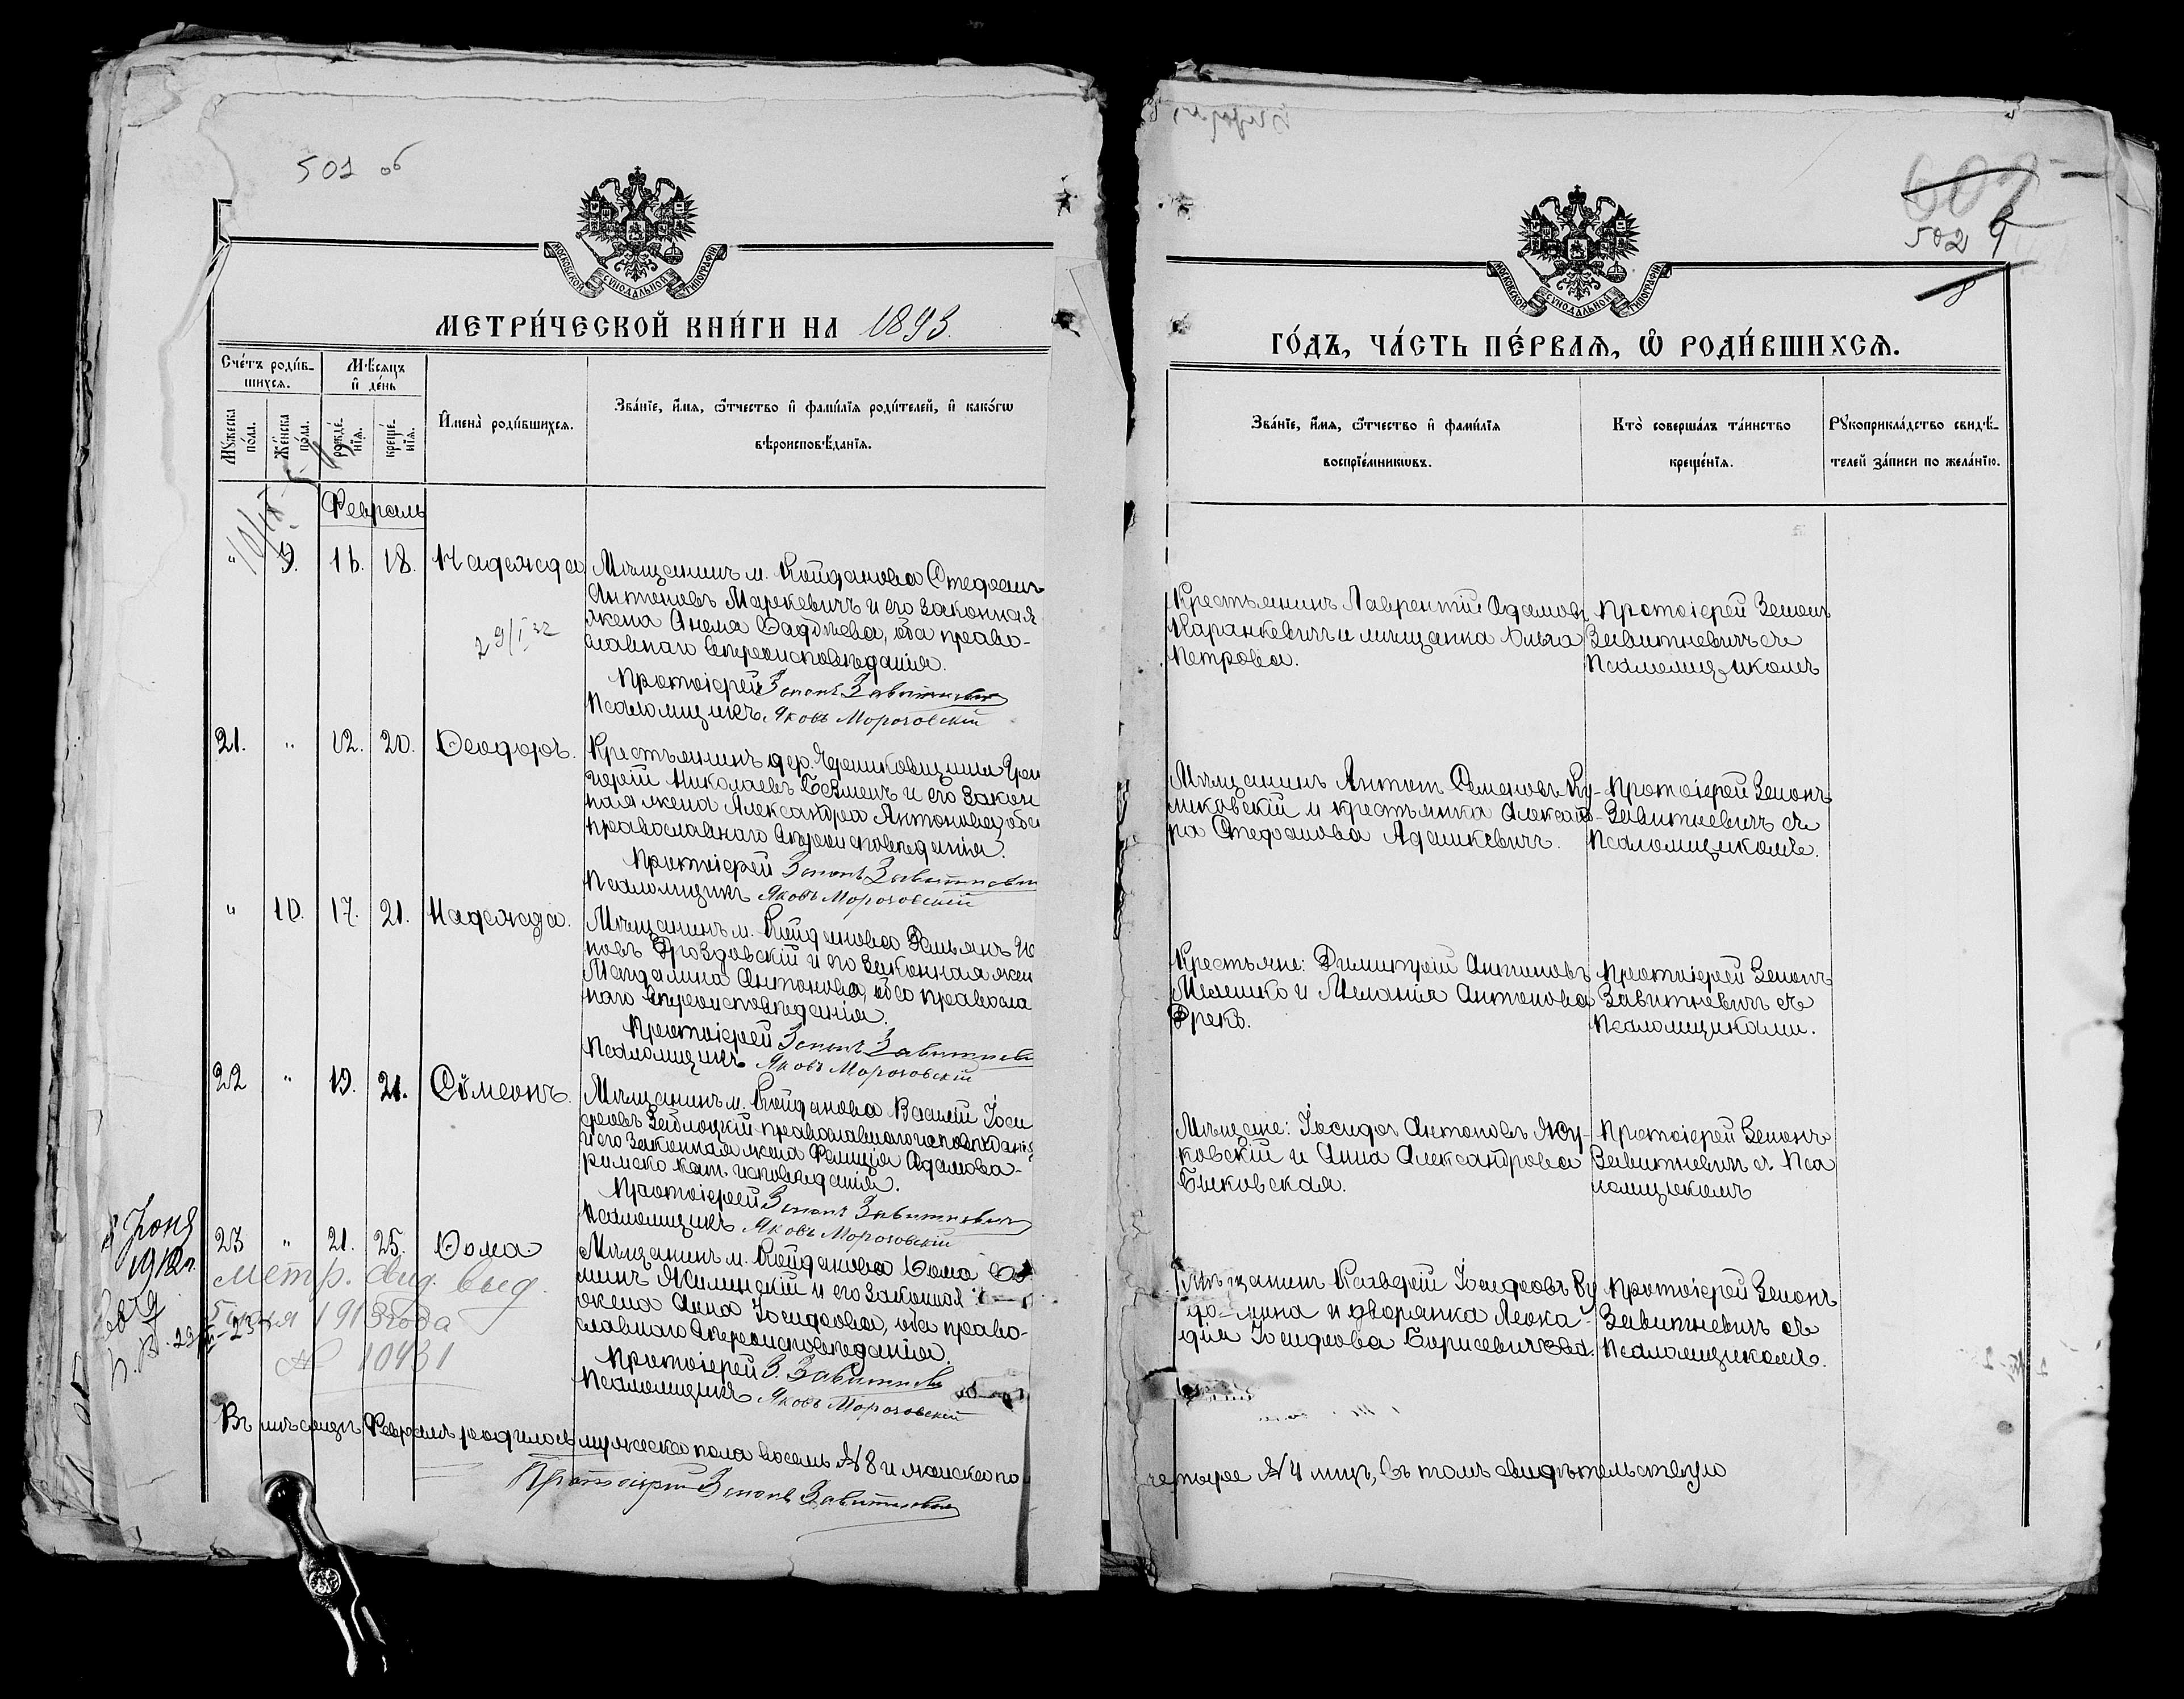 501 об
МОСКОВСКОЙ СѴНОДАЛЬНОЙ ТИПОГРАФІИ
МЕТРИ́ЧЕСКОЙ КНИ́ГИ НА 1893.
Сче́тъ роди́в-
шихся.
Мѣсяцъ
и де́нь
Мꙋжеска
по́ла.
Же́нска
по́ла.
рожде́-
нїя.
креще́-
нїя.
Имена̀ роди́вшихся.
Зва́нїе, и́мя, ѻ́тчество и фами́лїя роди́телей, и како́гѡ
вѣроисповѣ́данїя.
Февраль
" 9. 16. 18. Надежда
Мѣщанинъ м. Койданова Стефанъ
Антоновъ Маркевичъ и его законная
жена Анна Фаддѣева, оба право-
славнаго вѣроисповѣданія.
Протоіерей Зенонъ Завитневичъ
Псаломщикъ Яковъ Морозовскій
21. " 12. 20. Ѳеодоръ.
Крестьянинъ дер.
горій Николаевъ Безменъ и его закон
ная жена Александра Антонова, оба
православнаго вѣроисповѣданія.
Протоіерей Зенонъ Завитневич
Псаломщикъ Яковъ Морозовскій
" 10. 17. 21. Надежда.
Мѣщанинъ м. Койданова
новъ Дроздовскій и его законная жен
Магдалина Антонова, оба правосла
наго вѣроисповѣданія.
Протоіерей Зенонъ Завитневи
Псаломщикъ Яковъ Морозовскій
22 " 19. 21. Сѵмеонъ.
Мѣщанинъ м. Койданова Василій Іоси
фовъ Заблоцкій православнаго исповѣданія
и его законная жена Фелиція Адамова -
римско кат. исповѣданія.
Протоіерей Зенонъ Завитневичъ
Псаломщикъ Яковъ Морозовскій
23 " 21. 25. Ѳома
Мѣщанинъ м. Койданова Ѳома Ѳо
минъ Жилинскій и его законная
жена Анна Іосифова, оба право-
славнаго вѣроисповѣданія.
Протоіерей З. Завитневи
Псаломщикъ Яковъ Морозовскій
метр. выд.
1913 года
№ 10431
Въ мѣсяцѣ Февралѣ родилось мужеска пола восемь № 8 и женска по
Протоіерей Зенонъ Завитневичъ
502
МОСКОВСКОЙ СѴНОДАЛЬНОЙ ТИПОГРАФІИ
ГО́ДЪ, ЧА́СТЬ ПЕ́РВАЯ, Ѡ РОДИ́ВШИХСЯ.
Зва́нїе, и́мя, ѻ́тчество и фами́лїя
воспрїе́мникѡвъ.
Кто̀ соверша́лъ та́инство
креще́нїя.
Рꙋкоприкла́дство свидѣ́-
телей за́писи по жела́нїю.
Крестьянинъ Лаврентій Адамов
Таранкевичъ и мѣщанка Ольга
Петрова.
Протоіерей Зенонъ
Завитневичъ съ
Псаломщикомъ
Мѣщанинъ Антонъ Семеновъ Ку-
ликовскій и крестьянка Александ-
ра Стефанова Адашкевичъ.
Протоіерей Зенонъ
Завитневичъ съ
Псаломщикомъ.
Крестьяне: Димитрій Антоновъ
Мелешко и Меланія Антонова
Грекъ.
Протоіерей Зенонъ
Завитневичъ съ
Псаломщиками.
Мѣщане: Іосифъ Антоновъ Жу-
ковскій и Анна Александрова
Быковская.
Протоіерей Зенонъ
Завитневичъ съ Пса
ломщикомъ
Мѣщанинъ Іосифовъ
и дворянка Леока-
дія Іосифова Борисевичова.
Протоіерей Зенонъ
Завитневичъ съ
Псаломщикомъ.
четыре № 4 лицъ, въ томъ свидѣтельствую